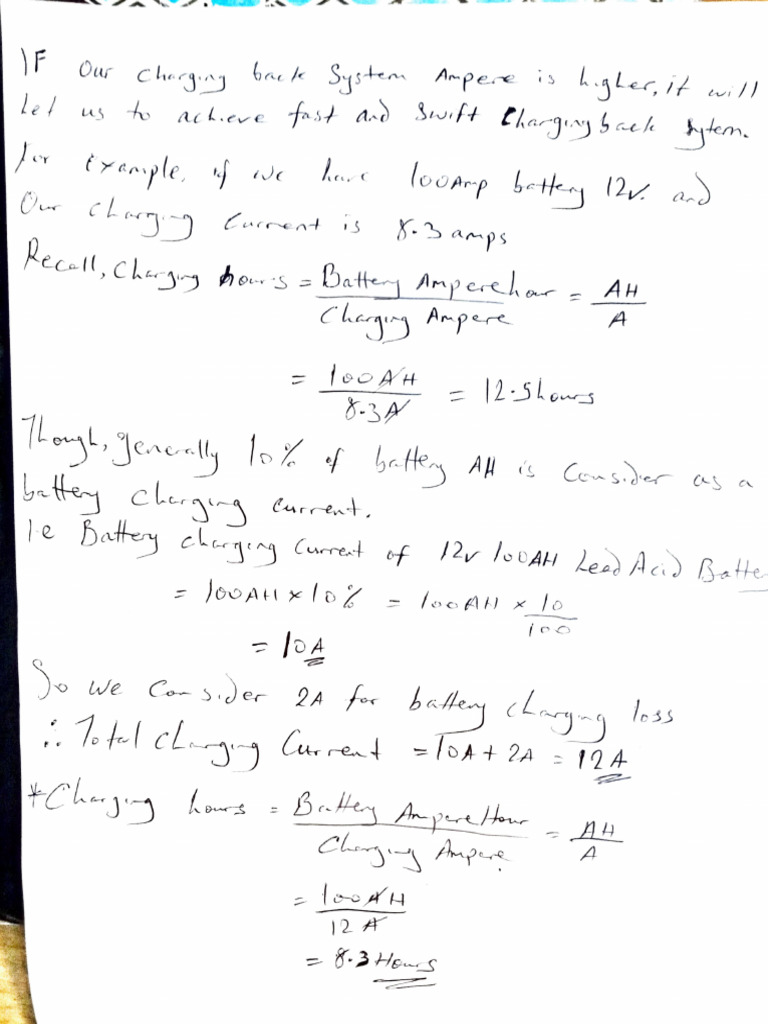 IF our charging back System Ampere is higher, it will
Let us to achieve fast and swift Charging back sytem.
For Example, if we have 100Amp battery 12v. and
Our charging Current is 8.3 amps
Recall, Charging hours = Battery Ampere hour / Charging Ampere = AH / A
= 100AH / 8.3A = 12.5hours
Though, generally 10% of battery AH is Consider as a
battery charging current.
I.e Battery charging Current of 12v 100AH Lead Acid Batte
= 100AH x 10% = 100AH x 10 / 100
= 10A
So we Consider 2A for battery charging loss
∴ Total charging Current = 10A + 2A = 12A
*Charging hours = Battery Ampere Hour / Charging Ampere. = AH / A
= 100AH / 12A
= 8.3 Hours